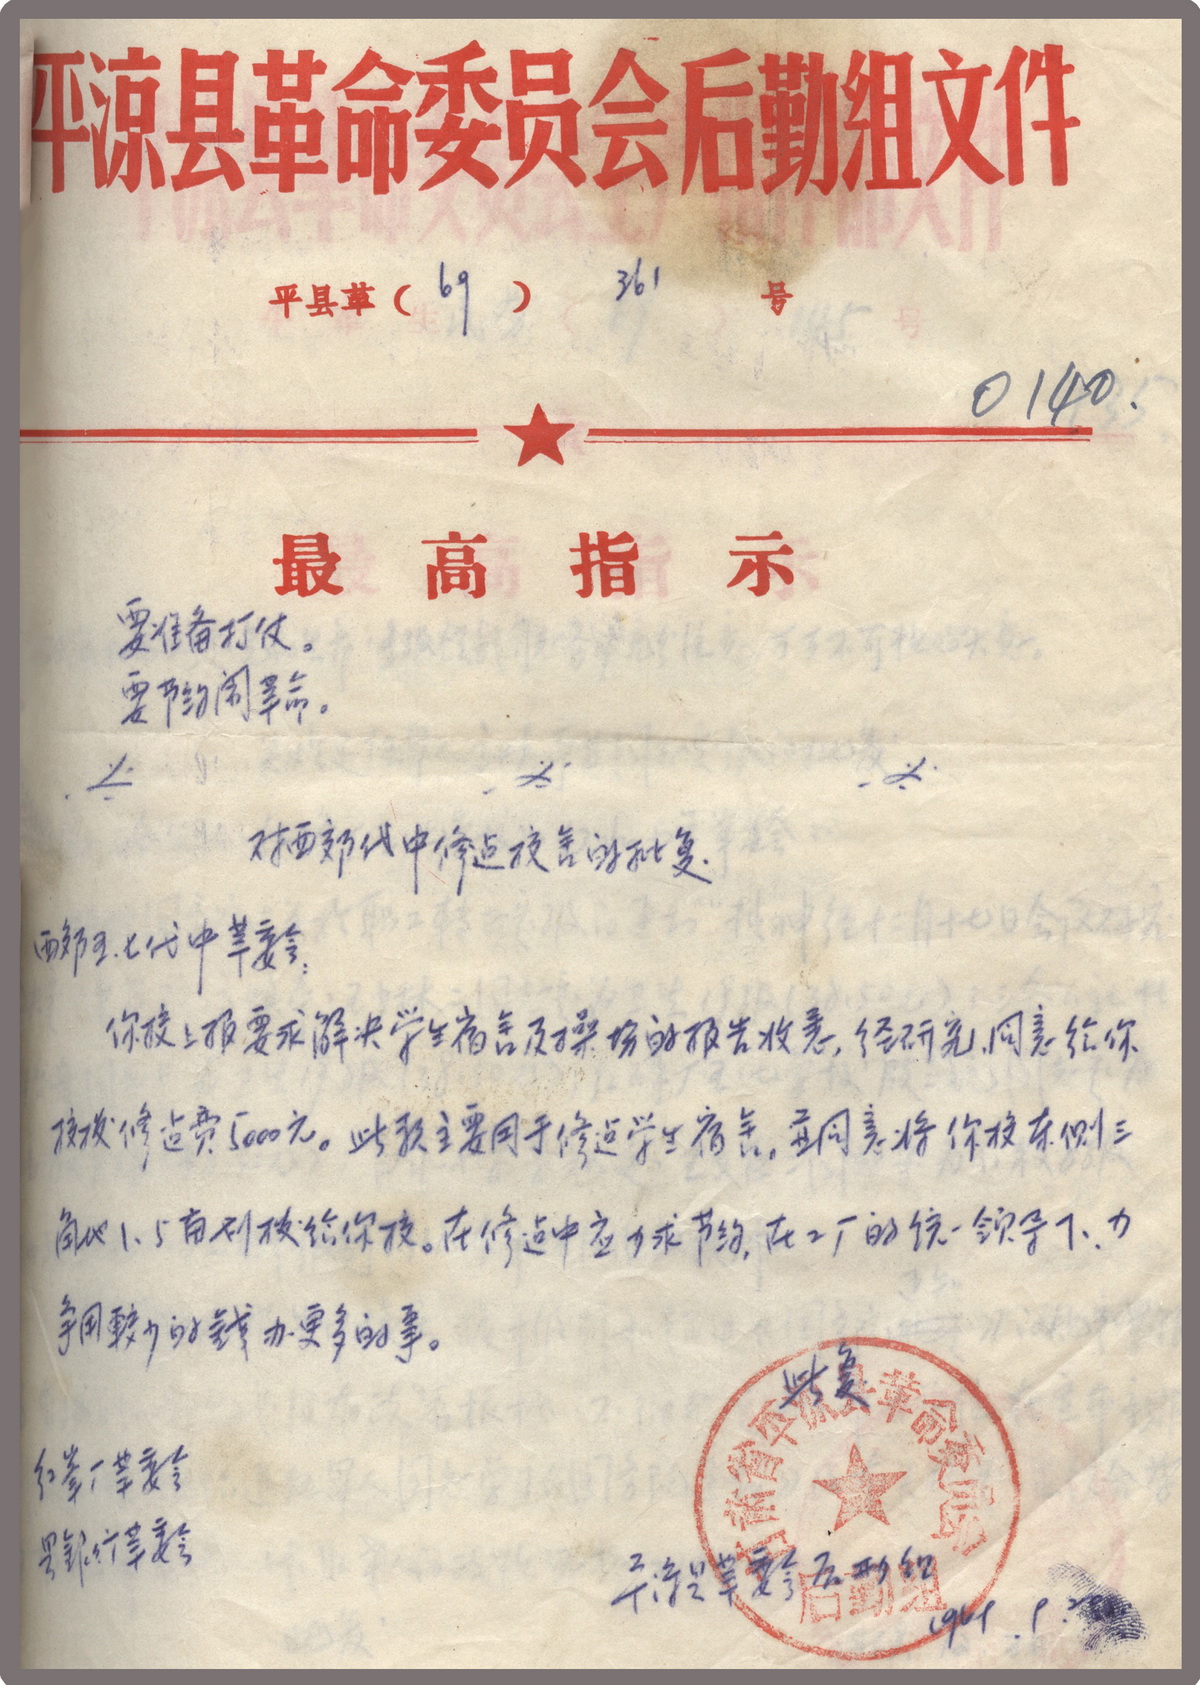 平凉县革命委员会后勤组文件
平县革（69）361号
0140.
最高指示
要准备打仗。
要节约闹革命。
对西郊代中修建校舍的批复.
西郊五.七代中革委会:
你校上报要求解决学生宿舍及操场的报告收悉,经研究,同意给你
校拨修建费5000元。此款主要用于修建学生宿舍。并同意将你校东侧三
角地1.5亩划拨给你校。在修建中应力求节约,在工厂的统一领导下、力
争用较少的钱办更多的事。
此复
红峯厂革委会
县银行革委会
平凉县革委会后勤组
1969.9.
甘肃省平凉县革命委员会
后勤组